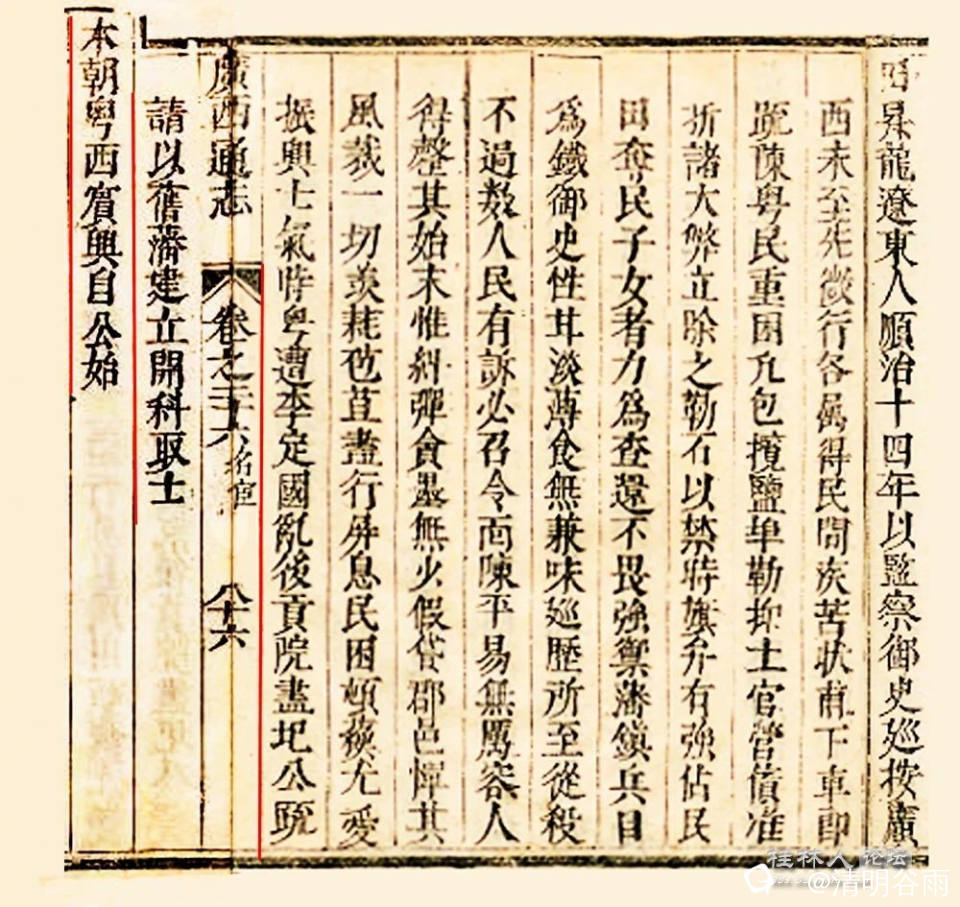 田昇龍遼東人順治十四年以監察御史廵按廣
西未至先微行各属得民間疾苦狀甫下車即
疏陳粤民重困凢包攬鹽埠勒抑土官營債准
折諸大弊立除之勒石以禁時旗弁有強佔民
田奪民子女者力為查還不畏強禦藩鎮兵目
為鐵御史性甘淡薄食無兼味廵歷所至從役
不過数人民有訴必召令面陳平易無厲容人
得罄其始末惟糾彈貪墨無少假貸郡邑憚其
風裁一切羡耗苞苴盡行屏息民困頓蘓尤愛
振興士氣時粤遭李定國亂後貢院盡圮公疏
廣西通志 卷之二十六 名宦 八十六
請以舊藩建立開科取士
本朝粤西賔興自公始
桂林人论坛
@清明谷雨